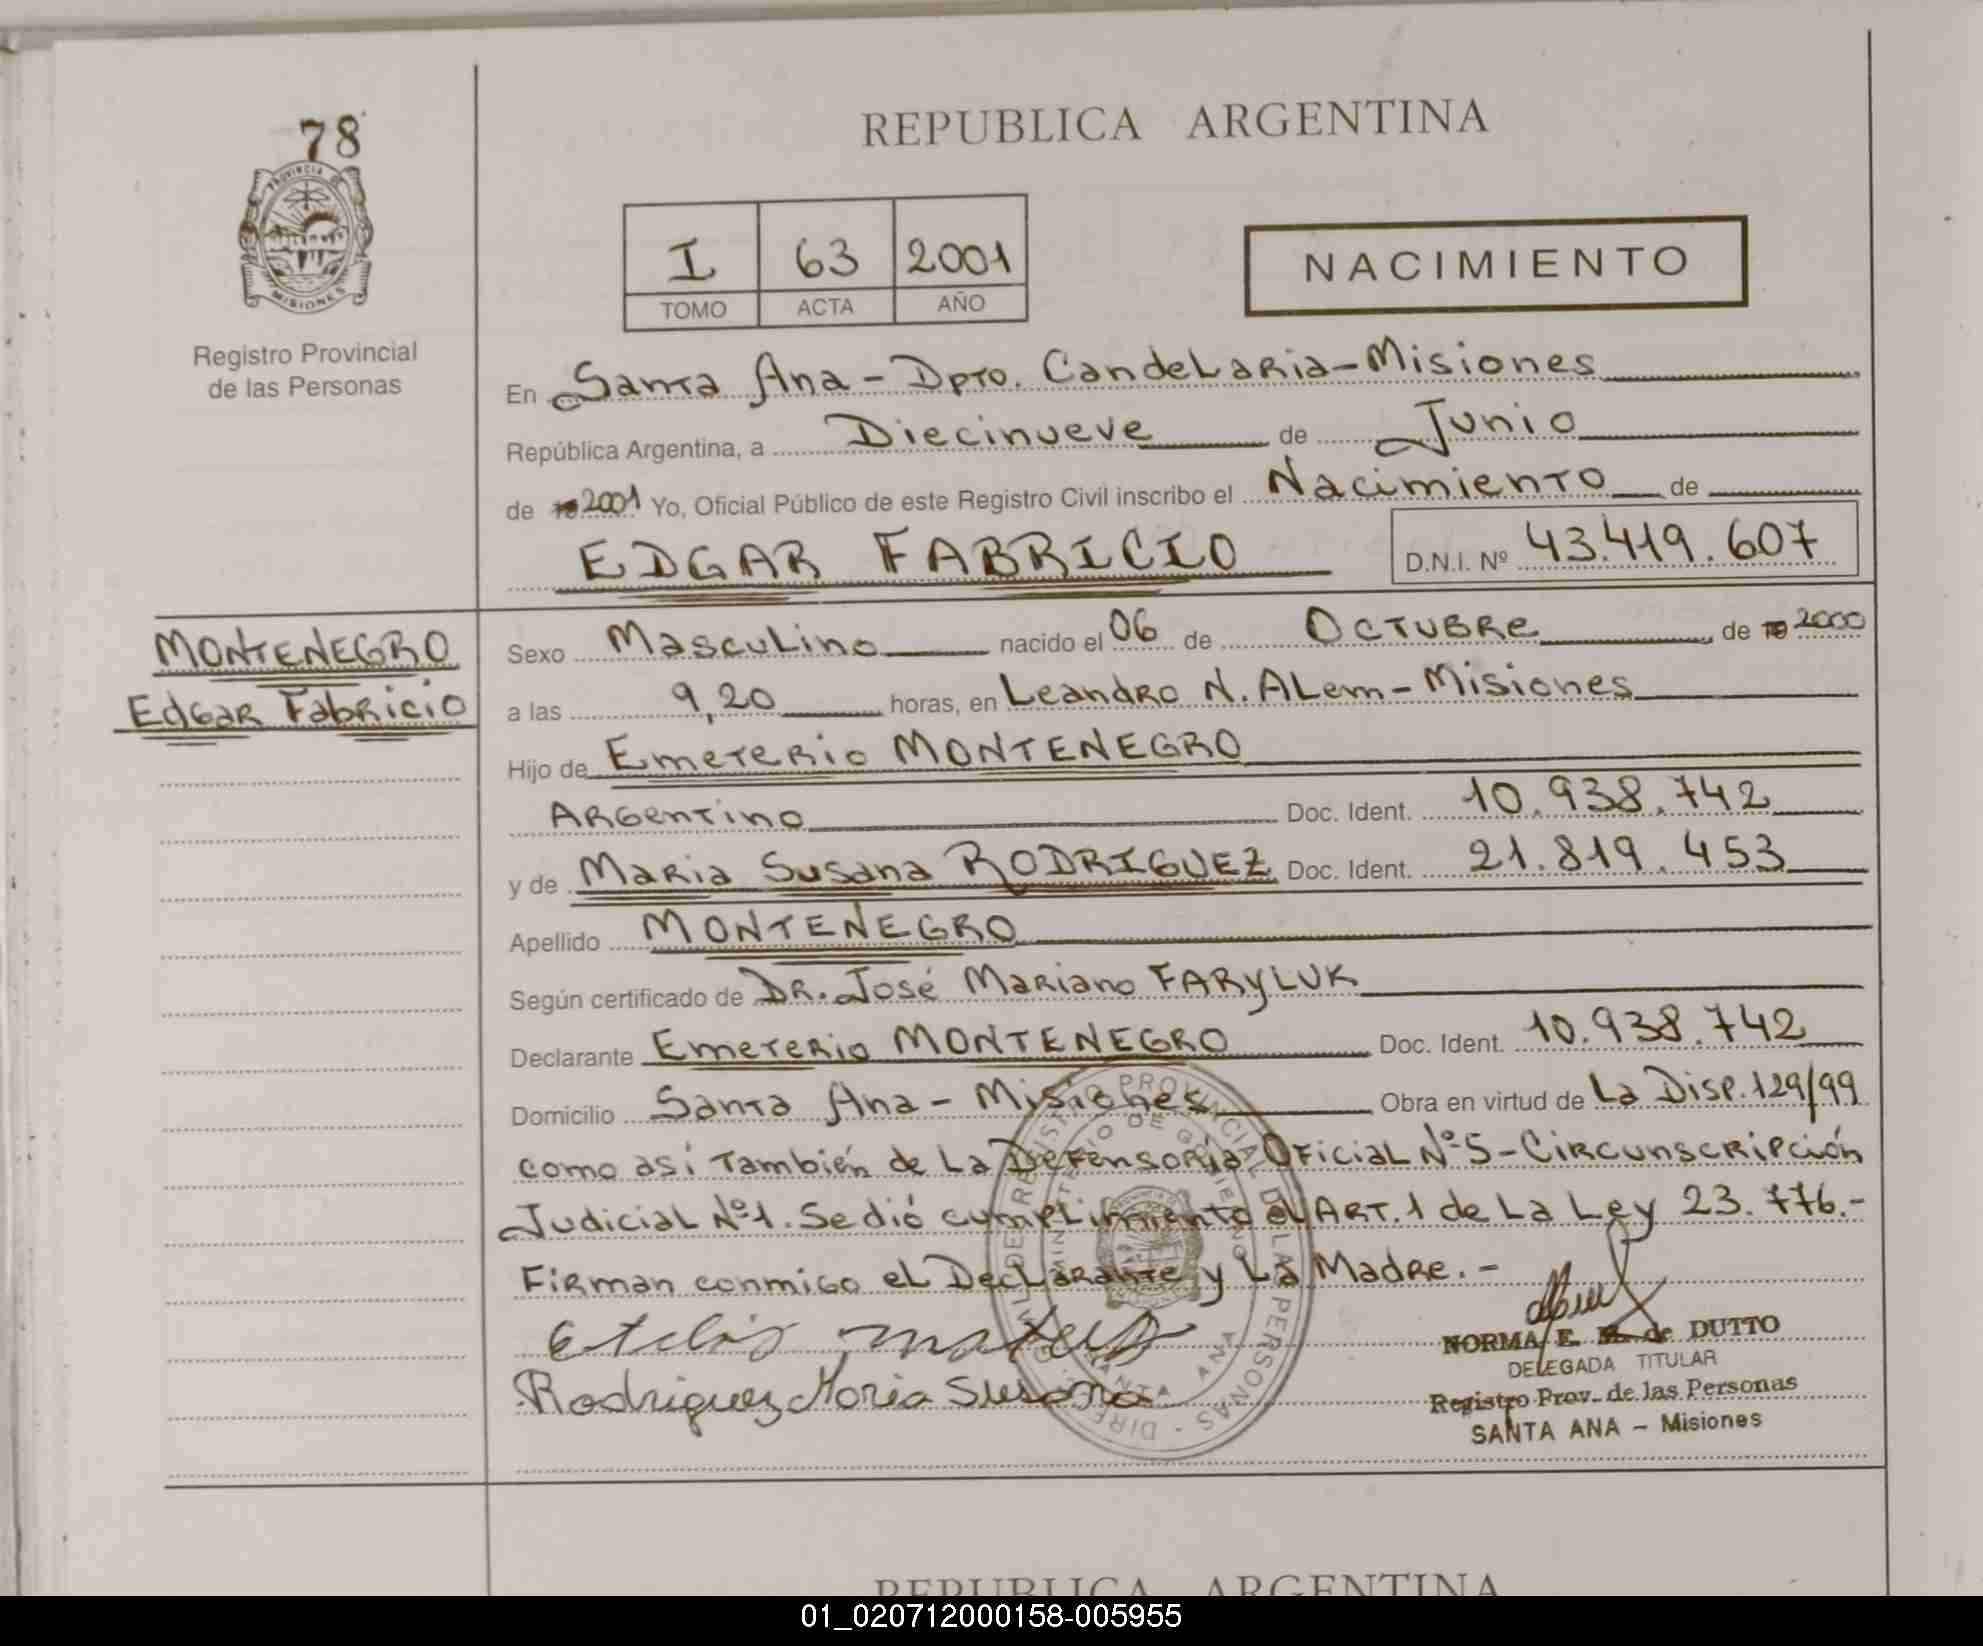 78
REPUBLICA ARGENTINA
PROVINCIA DE
MISIONES
I 63 2001
TOMO ACTA AÑO
NACIMIENTO
Registro Provincial
de las Personas
En Santa Ana - Dpto. Candelaria - Misiones
República Argentina, a Diecinueve de Junio
de 2001 Yo, Oficial Público de este Registro Civil inscribo el Nacimiento de
EDGAR FABRICIO D.N.I. Nº 43.419.607
MONTENEGRO
Edgar Fabricio
Sexo Masculino nacido el 06 de Octubre de 2000
a las 9,20 horas, en Leandro N. Alem - Misiones
Hijo de Emeterio MONTENEGRO
Argentino Doc. Ident. 10.938.742
y de Maria Susana RODRIGUEZ Doc. Ident. 21.819.453
Apellido MONTENEGRO
Según certificado de DR. José Mariano FARYLUK
Declarante Emeterio MONTENEGRO Doc. Ident. 10.938.742
Domicilio Santa Ana - Misiones Obra en virtud de La Disp. 129/99
como así también de la Defensoría Oficial Nº 5 - Circunscripción
Judicial Nº 1. Se dió cumplimiento al Art. 1 de La Ley 23.776.-
Firman conmigo el Declarante y La Madre.-
Rodriguez Maria Susana
NORMA E. de DUTTO
DELEGADA TITULAR
Registro Prov. de las Personas
SANTA ANA - Misiones
REPUBLICA ARGENTINA
01_020712000158-005955